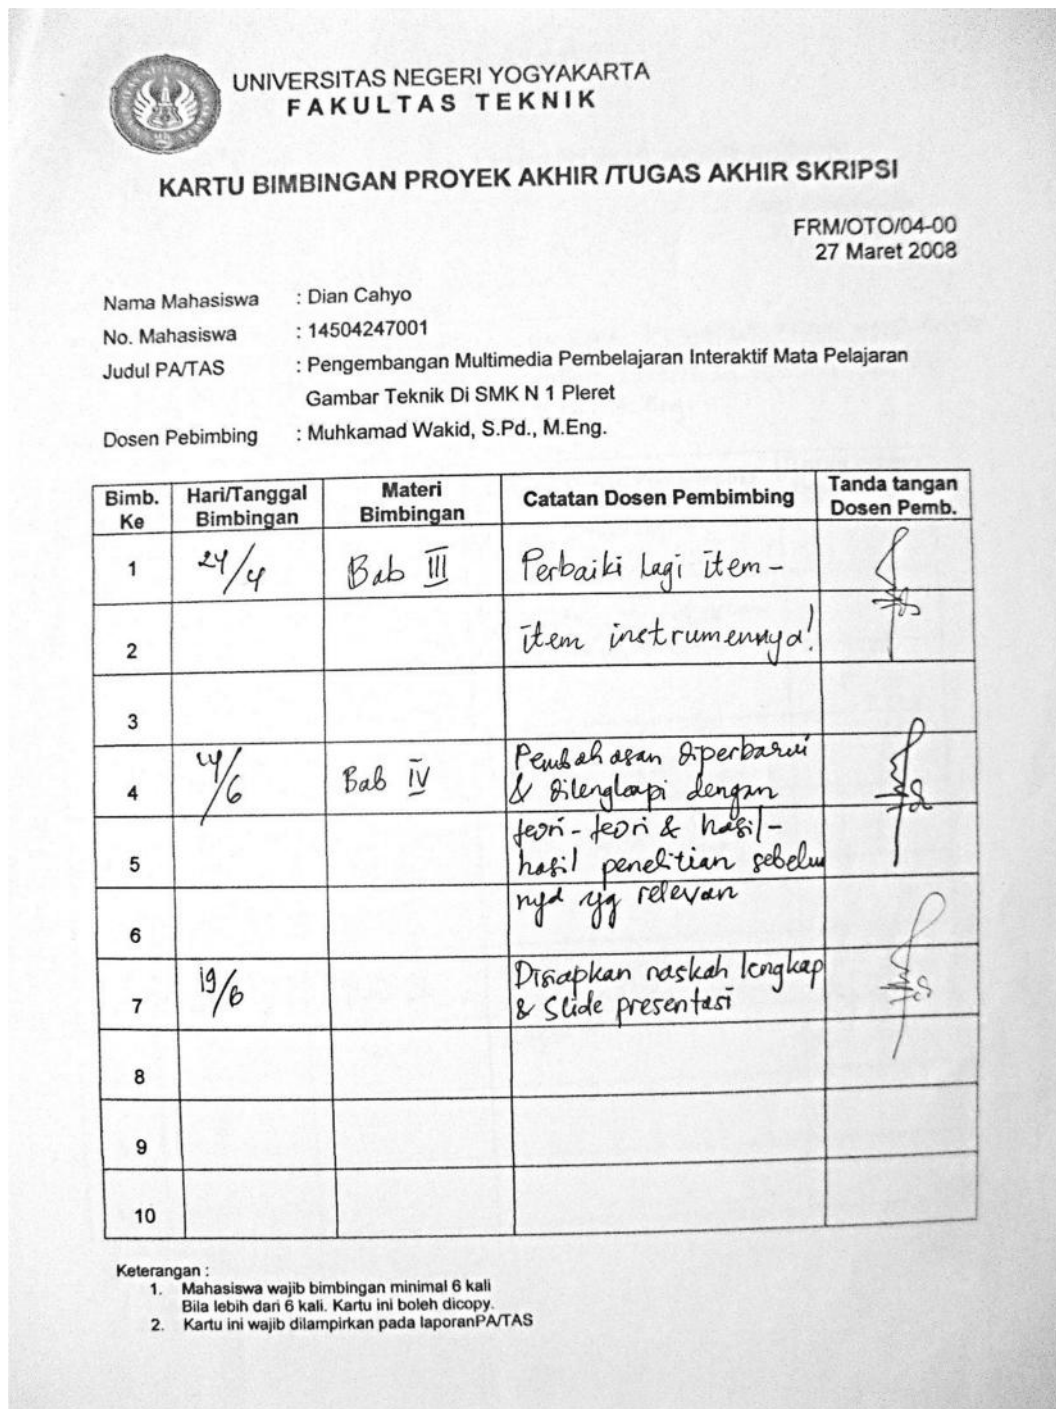 UNIVERSITAS NEGERI YOGYAKARTA
FAKULTAS TEKNIK
KARTU BIMBINGAN PROYEK AKHIR /TUGAS AKHIR SKRIPSI
FRM/OTO/04-00
27 Maret 2008
Nama Mahasiswa : Dian Cahyo
No. Mahasiswa : 14504247001
Judul PA/TAS : Pengembangan Multimedia Pembelajaran Interaktif Mata Pelajaran
Gambar Teknik Di SMK N 1 Pleret
Dosen Pebimbing : Muhkamad Wakid, S.Pd., M.Eng.
Bimb. Ke Hari/Tanggal Bimbingan Materi Bimbingan Catatan Dosen Pembimbing Tanda tangan Dosen Pemb.
1 24/4 Bab III Perbaiki lagi item-
2 item instrumennya!
3
4 Bab IV Pembahasan diperbarui
& dilengkapi dengan
teori-teori & hasil-
5 hasil penelitian sebelum
nya yg relevan
6
7 19/6 Disiapkan naskah lengkap
& Slide presentasi
8
9
10
Keterangan :
1. Mahasiswa wajib bimbingan minimal 6 kali
Bila lebih dari 6 kali. Kartu ini boleh dicopy.
2. Kartu ini wajib dilampirkan pada laporanPA/TAS